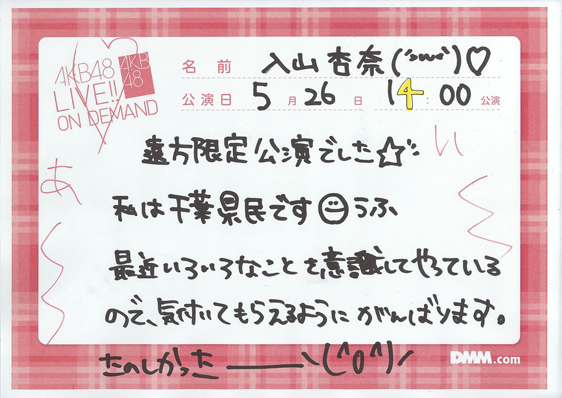 AKB48
LIVE!!
ON DEMAND
AKB
48
名前 入山杏奈(´>ω<`)♡
公演日 5月26日 14:00公演
遠方限定公演でした☆
い
あ
私は千葉県民です☺うふ
最近いろいろなことを意識してやっている
ので、気付いてもらえるようにがんばります。
たのしかった――――\(^o^)/
DMM.com